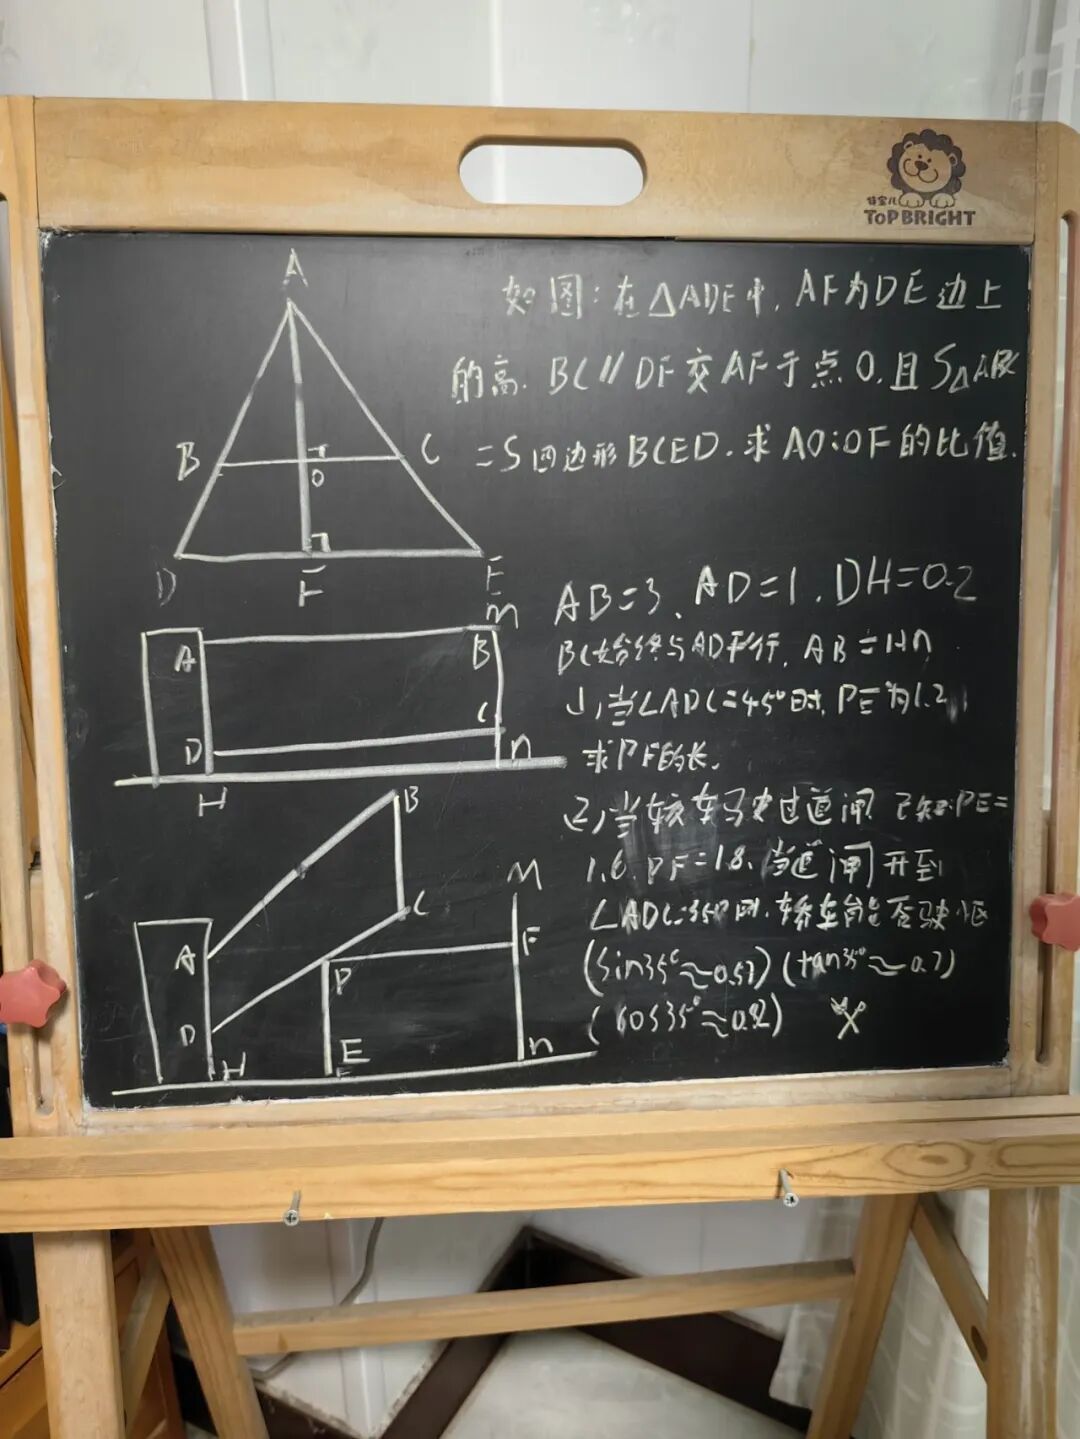 甘宝儿
TOPBRIGHT
A
B
C
O
D
F
E
如图:在△ADE中,AF为DE边上
的高.BC∥DF交AF于点O.且S△ABC
=S四边形BCED.求AO:OF的比值.
AB=3、AD=1.DH=0.2
BC始终与AD平行.AB=HN
1,当∠ADC=45°时,PE为1.2,
求PF的长.
2,当轿车驶过道闸.已知PE=
1.6.PF=1.8.当道闸开到
∠ADC=35°时.轿车能否驶
(sin35°≈0.57)(tan35°≈0.7)
(cos35°≈0.82)
A
B
M
D
C
n
H
A
B
C
M
D
P
F
H
E
n